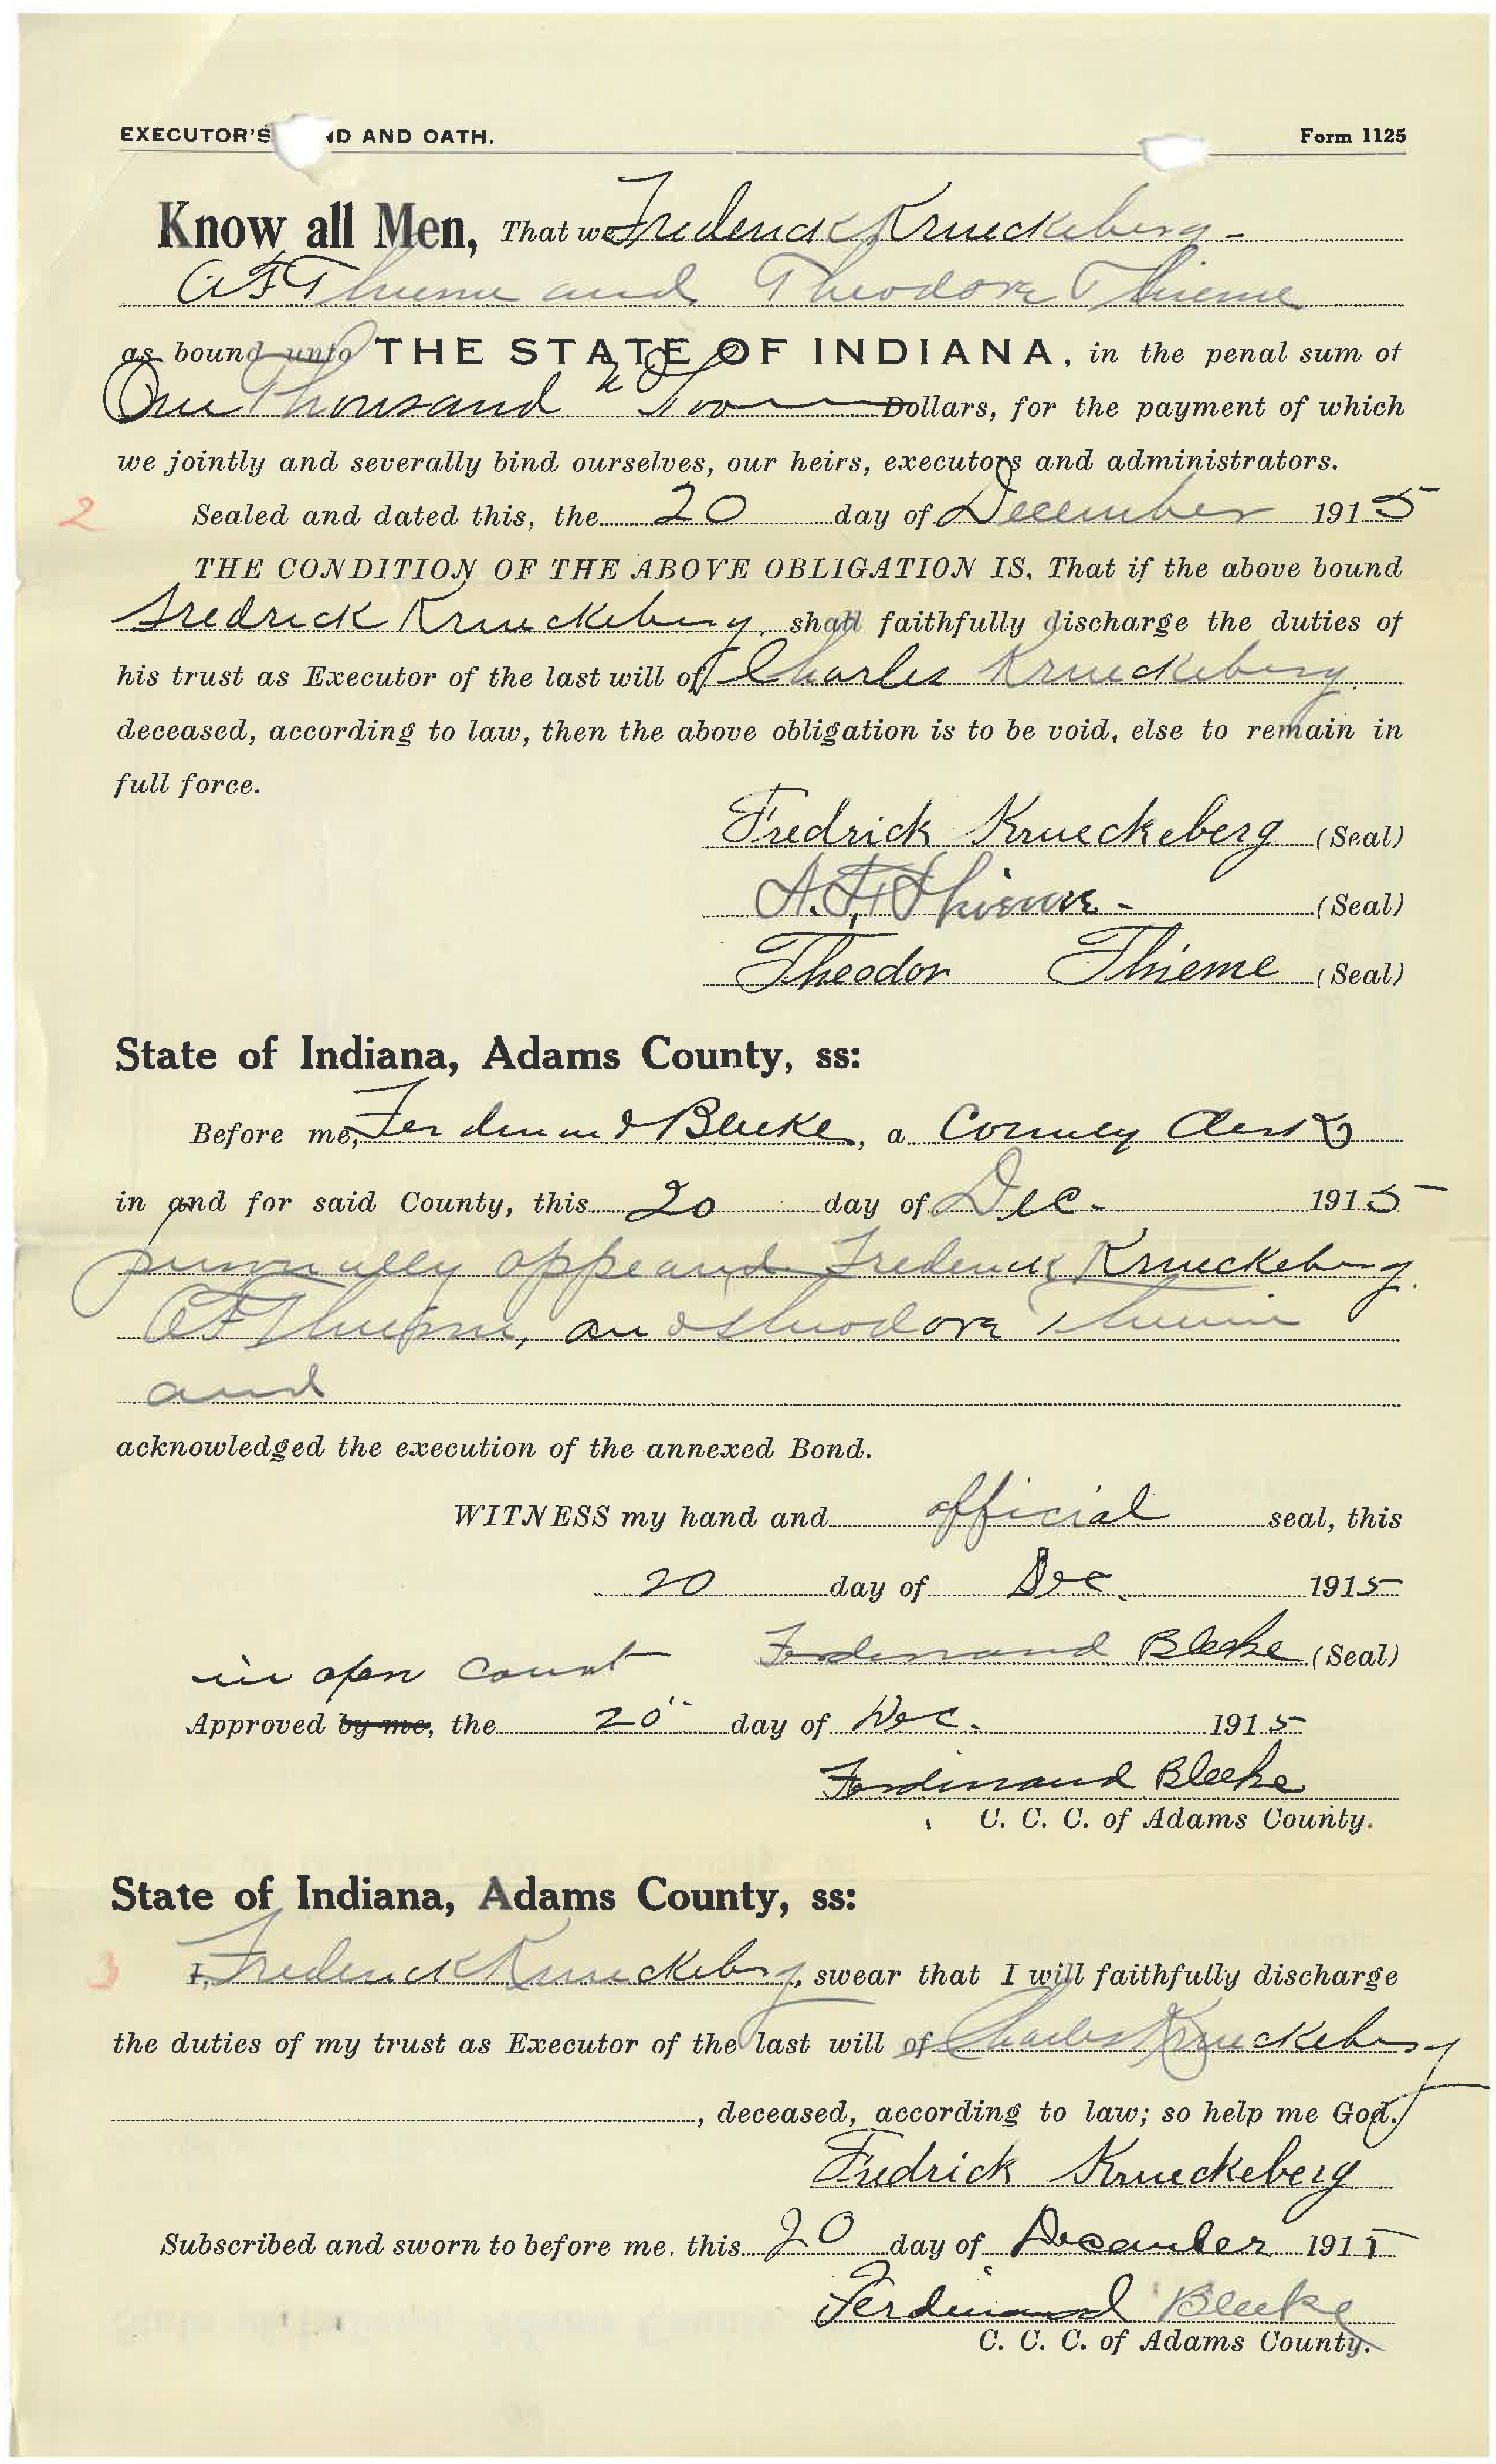 EXECUTOR'S ND AND OATH. Form 1125
Know all Men, That we Frederick Krueckeberg -
A F Thieme and Theodore Thieme
as bound unto THE STATE OF INDIANA, in the penal sum of
One Thousand Dollars, for the payment of which
we jointly and severally bind ourselves, our heirs, executors and administrators.
2 Sealed and dated this, the 20 day of December 1915
THE CONDITION OF THE ABOVE OBLIGATION IS, That if the above bound
Fredrick Krueckeberg, shall faithfully discharge the duties of
his trust as Executor of the last will of Charles Krueckeberg.
deceased, according to law, then the above obligation is to be void, else to remain in
full force.
Fredrick Krueckeberg (Seal)
A. F. Thieme - (Seal)
Theodor Thieme (Seal)
State of Indiana, Adams County, ss:
Before me, Ferdinand Bleeke, a County Clerk
in and for said County, this 20 day of Dec. 1915
personally appeared Frederick Krueckeberg.
A F Thieme, and Theodore Thieme
and
acknowledged the execution of the annexed Bond.
WITNESS my hand and official seal, this
20 day of Dec. 1915
in open Court Ferdinand Bleeke (Seal)
Approved by me, the 20" day of Dec. 1915
Ferdinand Bleeke
C. C. C. of Adams County.
State of Indiana, Adams County, ss:
3 I, Frederick Krueckeberg, swear that I will faithfully discharge
the duties of my trust as Executor of the last will of Charles Krueckeberg
, deceased, according to law; so help me God.
Fredrick Krueckeberg
Subscribed and sworn to before me. this 20 day of December 1915
Ferdinand Bleeke
C. C. C. of Adams County.